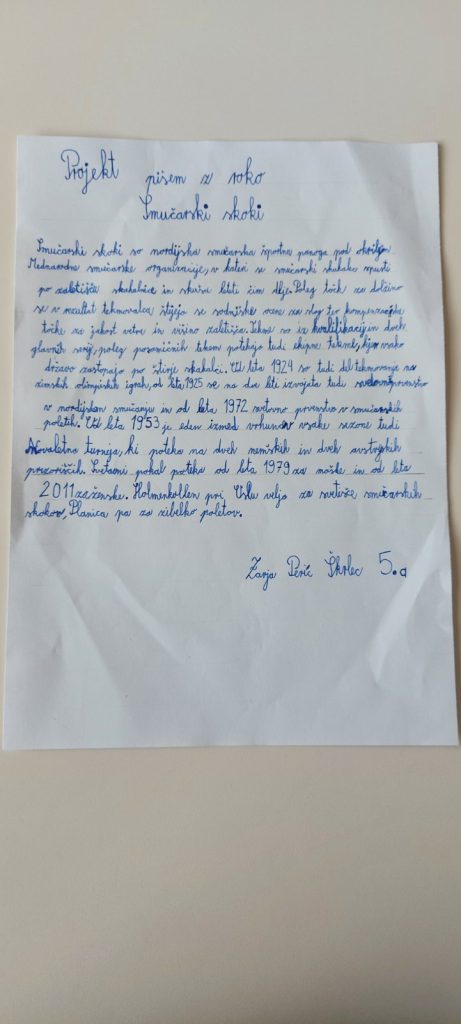 Projekt pišem z roko
Smučarski skoki
Smučarski skoki so nordijska smučarska športna panoga pod okriljem
Mednarodne smučarske organizacije, v kateri se smučarski skakalec spusti
po zaletišču skakalnice in skuša leteti čim dlje. Poleg točk za dolžino
se v rezultat tekmovalca štejejo še sodniške ocene za slog ter kompenzacijske
točke za jakost vetra in višino zaletišča. Tekme so iz kvalifikacij in dveh
glavnih serij, poleg posamičnih tekem potekajo tudi ekipne tekme, kjer vsako
državo zastopajo po štirje skakalci. Od leta 1924 so tudi del tekmovanja na
zimskih olimpijskih igrah, od leta 1925 se na dve leti izvajata tudi svetovno prvenstvo
v nordijskem smučanju in od leta 1972 svetovno prvenstvo v smučarskih
poletih. Od leta 1953 je eden izmed vrhuncev vsake sezone tudi
Novoletna turneja, ki poteka na dveh nemških in dveh avstrijskih
prizoriščih. Svetovni pokal poteka od leta 1979 za moške in od leta
2011 za ženske. Holmenkollen pri Oslu velja za svetišče smučarskih
skokov, Planica pa za zibelko poletov.
Zarja Perič Škrlec 5.a